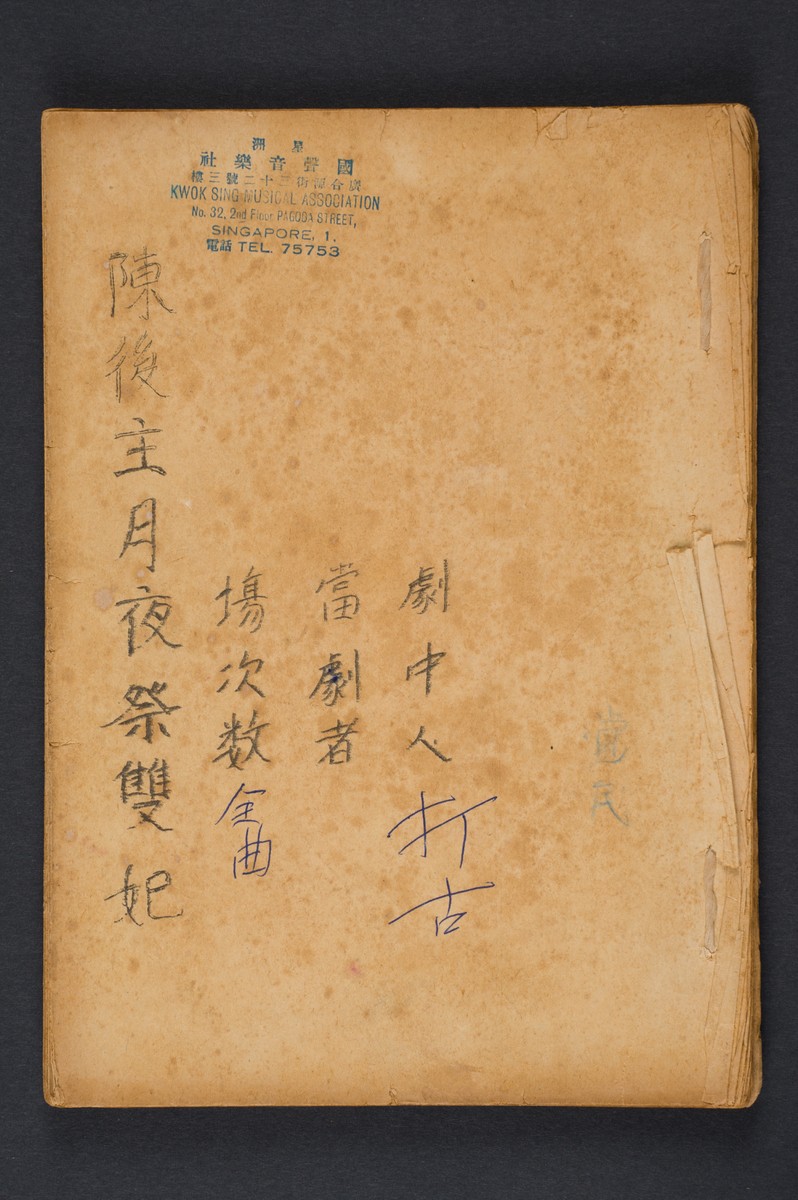 洲 星
社 樂 音 聲 國
樓三號二十三街源合廣
KWOK SING MUSICAL ASSOCIATION
No. 32, 2nd Floor PAGODA STREET,
SINGAPORE, 1.
電話 TEL. 75753
劇中人 打古
當劇者
場次数 全曲
陳後主月夜祭雙妃